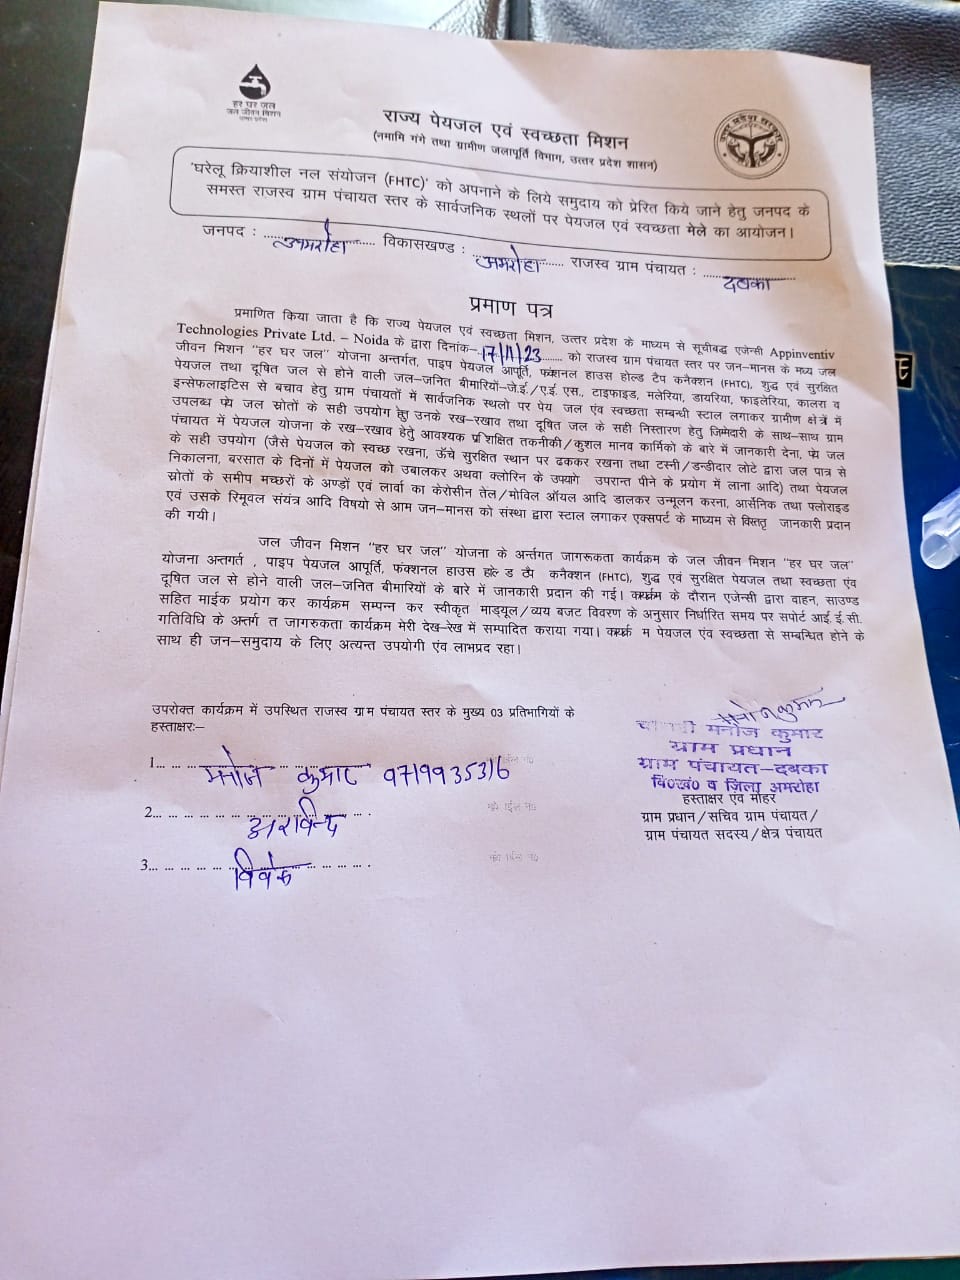 हर घर जल
जल जीवन मिशन
उत्तर प्रदेश
राज्य पेयजल एवं स्वच्छता मिशन
(नमामि गंगे तथा ग्रामीण जलापूर्ति विभाग, उत्तर प्रदेश शासन)
उत्तर प्रदेश सरकार
'घरेलू क्रियाशील नल संयोजन (FHTC)' को अपनाने के लिये समुदाय को प्रेरित किये जाने हेतु जनपद के
समस्त राजस्व ग्राम पंचायत स्तर के सार्वजनिक स्थलों पर पेयजल एवं स्वच्छता मेले का आयोजन।
जनपद : अमरोहा विकासखण्ड : अमरोहा राजस्व ग्राम पंचायत : दबका
प्रमाण पत्र
प्रमाणित किया जाता है कि राज्य पेयजल एवं स्वच्छता मिशन, उत्तर प्रदेश के माध्यम से सूचीबद्ध एजेन्सी Appinventiv
Technologies Private Ltd. – Noida के द्वारा दिनांक– 17/11/23 को राजस्व ग्राम पंचायत स्तर पर जन–मानस के मध्य जल
जीवन मिशन "हर घर जल" योजना अन्तर्गत, पाइप पेयजल आपूर्ति, फंक्शनल हाउस होल्ड टैप कनैक्शन (FHTC), शुद्ध एवं सुरक्षित
पेयजल तथा दूषित जल से होने वाली जल–जनित बीमारियों–जे.ई./ए.ई. एस., टाइफाइड, मलेरिया, डायरिया, फाइलेरिया, कालरा व
इन्सेफलाइटिस से बचाव हेतु ग्राम पंचायतों में सार्वजनिक स्थलो पर पेय जल एंव स्वच्छता सम्बन्धी स्टाल लगाकर ग्रामीण क्षेत्रें में
उपलब्ध पेय जल स्रोतों के सही उपयोग हेतु उनके रख–रखाव तथा दूषित जल के सही निस्तारण हेतु जिम्मेदारी के साथ–साथ ग्राम
पंचायत में पेयजल योजना के रख–रखाव हेतु आवश्यक प्रशिक्षित तकनीकी/कुशल मानव कार्मिको के बारे में जानकारी देना, पेय जल
के सही उपयोग (जैसे पेयजल को स्वच्छ रखना, ऊँचे सुरक्षित स्थान पर ढककर रखना तथा टस्नी/डन्डीदार लोटे द्वारा जल पात्र से
निकालना, बरसात के दिनों में पेयजल को उबालकर अथवा क्लोरिन के उपयोग उपरान्त पीने के प्रयोग में लाना आदि) तथा पेयजल
स्रोतों के समीप मच्छरों के अण्डों एवं लार्वा का केरोसीन तेल/मोविल ऑयल आदि डालकर उन्मूलन करना, आर्सेनिक तथा फ्लोराइड
एवं उसके रिमूवल संयंत्र आदि विषयो से आम जन–मानस को संस्था द्वारा स्टाल लगाकर एक्सपर्ट के माध्यम से विस्तृत जानकारी प्रदान
की गयी।
जल जीवन मिशन "हर घर जल" योजना के अर्न्तगत जागरूकता कार्यक्रम के जल जीवन मिशन "हर घर जल"
योजना अतंगर्त , पाइप पेयजल आपूर्ति, फंक्शनल हाउस होल्ड टैप कनैक्शन (FHTC), शुद्ध एवं सुरक्षित पेयजल तथा स्वच्छता एंव
दूषित जल से होने वाली जल–जनित बीमारियों के बारे में जानकारी प्रदान की गई। कार्यक्रम के दौरान एजेन्सी द्वारा वाहन, साउण्ड
सहित माईक प्रयोग कर कार्यक्रम सम्पन्न कर स्वीकृत माड्यूल/व्यय बजट विवरण के अनुसार निर्धारित समय पर सपोर्ट आई.ई.सी.
गतिविधि के अन्तर्गत जागरुकता कार्यक्रम मेरी देख–रेख में सम्पादित कराया गया। कार्यक्रम पेयजल एंव स्वच्छता से सम्बन्धित होने के
साथ ही जन–समुदाय के लिए अत्यन्त उपयोगी एंव लाभप्रद रहा।
उपरोक्त कार्यक्रम में उपस्थित राजस्व ग्राम पंचायत स्तर के मुख्य 03 प्रतिभागियों के
हस्ताक्षरः–
1... मनोज कुमार 9719935316
2... अरविन्द
3... विवेक
मनोज कुमार
मनोज कुमार
ग्राम प्रधान
ग्राम पंचायत–दबका
वि०खं० व जिला अमरोहा
हस्ताक्षर एवं मोहर
ग्राम प्रधान/सचिव ग्राम पंचायत/
ग्राम पंचायत सदस्य/क्षेत्र पंचायत